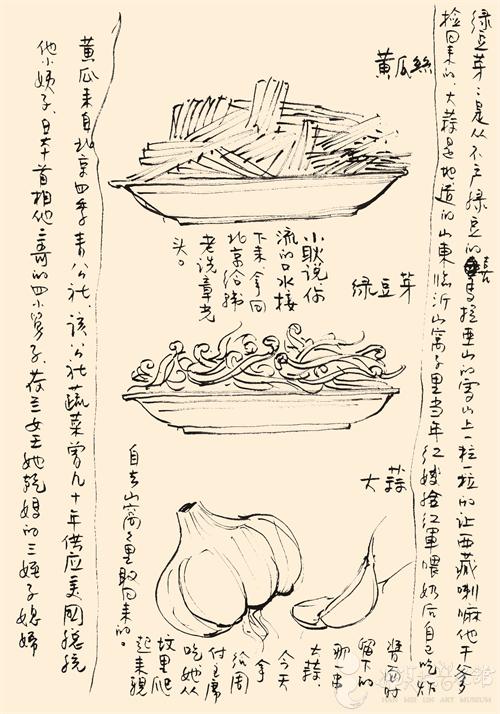 绿豆芽：是从不产绿豆的喜馬拉亚山的雪山上一粒一粒的让西藏喇嘛他干爹
捡回来的，大蒜是地道的山東临沂山窝子里当年红嫂给红軍喂奶后自己吃炸
酱面时
留下的
那串
大蒜，
今天
拿
给周
付主席
吃她从
坟里爬
起来親
自去山窝窝里取回来的。
黄瓜絲
绿豆芽
大蒜
小耿说你
流的口水接
下来拿回
北京给韩
老洗章光
头。
黄瓜来自北京四季青公社，该公社蔬菜曾九十年供应美國總统
他小姨子日本首相他三哥的四小舅子荷兰女王她乾媽的三姪子媳婦
HAN MEI LIN ART MUSEUM